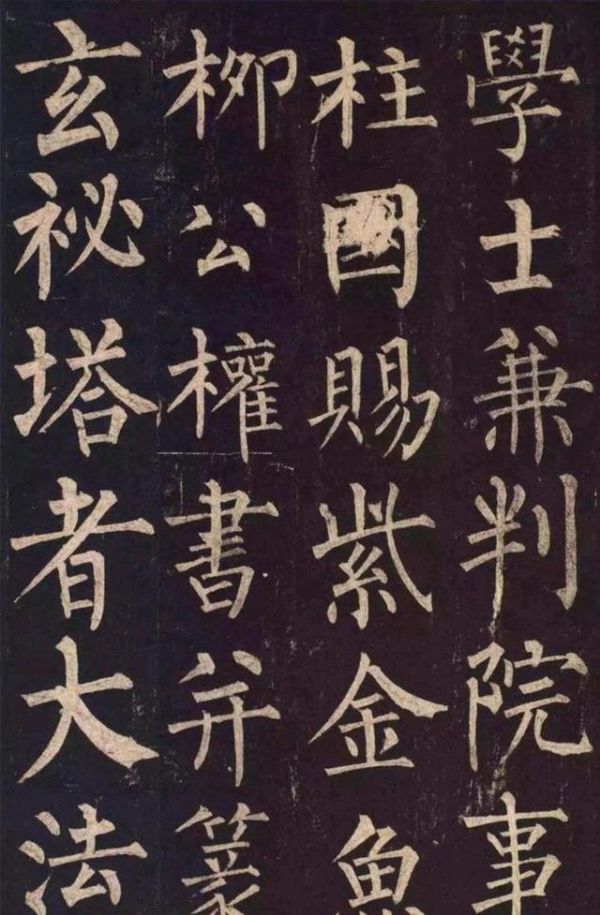 學士兼判院事
柱國賜紫金魚
柳公權書并篆
玄祕塔者大法